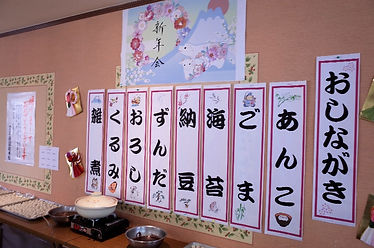 新年会
おしながき
あんこ
ごま
海苔
納豆
ずんだ
おろし
くるみ
雑煮